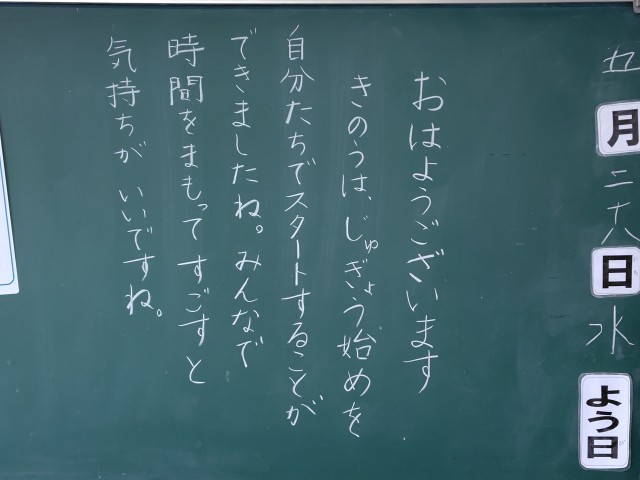 五月二十八日水よう日
おはようございます
きのうは、じゅぎょう始めを
自分たちでスタートすることが
できましたね。みんなで
時間をまもってすごすと
気持ちがいいですね。